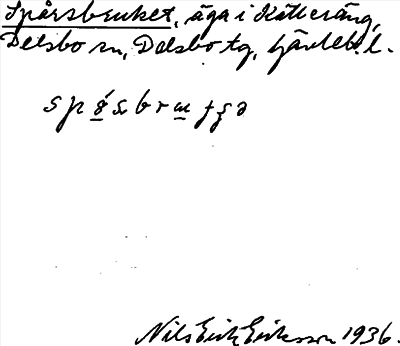 Spårsbruket, äga i Källeräng,
Delsbo sn, Delsbo tg, Gävleb. l.
Nils Erik Eriksson 1936.